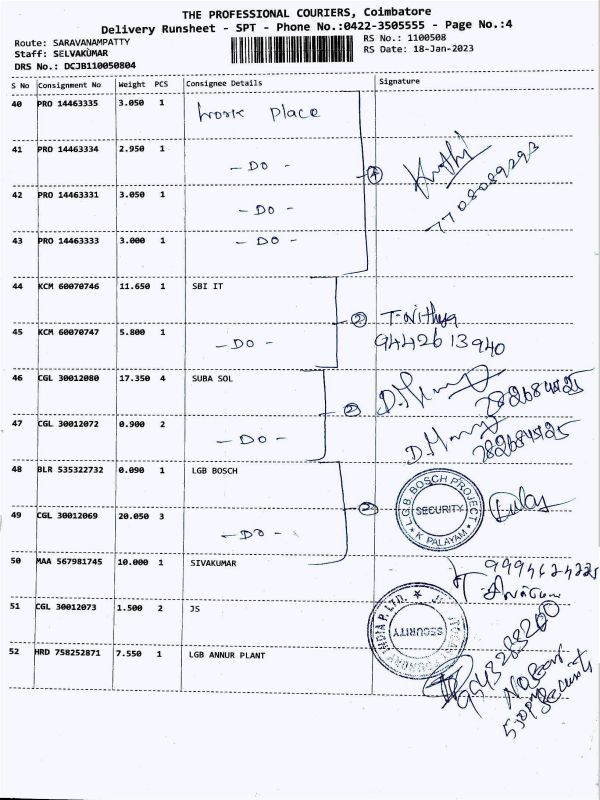 THE PROFESSIONAL COURIERS, Coimbatore
Delivery Runsheet - SPT - Phone No.:0422-3505555 - Page No.:4
Route: SARAVANAMPATTY
RS No.: 1100508
Staff: SELVAKUMAR
RS Date: 18-Jan-2023
DRS No.: DCJB110050804
S No Consignment No Weight PCS Consignee Details Signature
40 PRO 14463335 3.050 1 Work Place
41 PRO 14463334 2.950 1 - DO -
4
7708089293
42 PRO 14463331 3.050 1 - DO -
43 PRO 14463333 3.000 1 - DO -
44 KCM 60070746 11.650 1 SBI IT
2 T. Nithya
45 KCM 60070747 5.800 1 - DO - 9442613940
46 CGL 30012080 17.350 4 SUBA SOL
2
47 CGL 30012072 0.900 2 - DO -
48 BLR 535322732 0.090 1 LGB BOSCH
2 L.G.B BOSCH PROJECT
SECURITY
K PALAYAM
49 CGL 30012069 20.050 3 - DO -
50 MAA 567981745 10.000 1 SIVAKUMAR
51 CGL 30012073 1.500 2 JS
INDIA P. LTD.
SECURITY
52 HRD 758252871 7.550 1 LGB ANNUR PLANT
Security